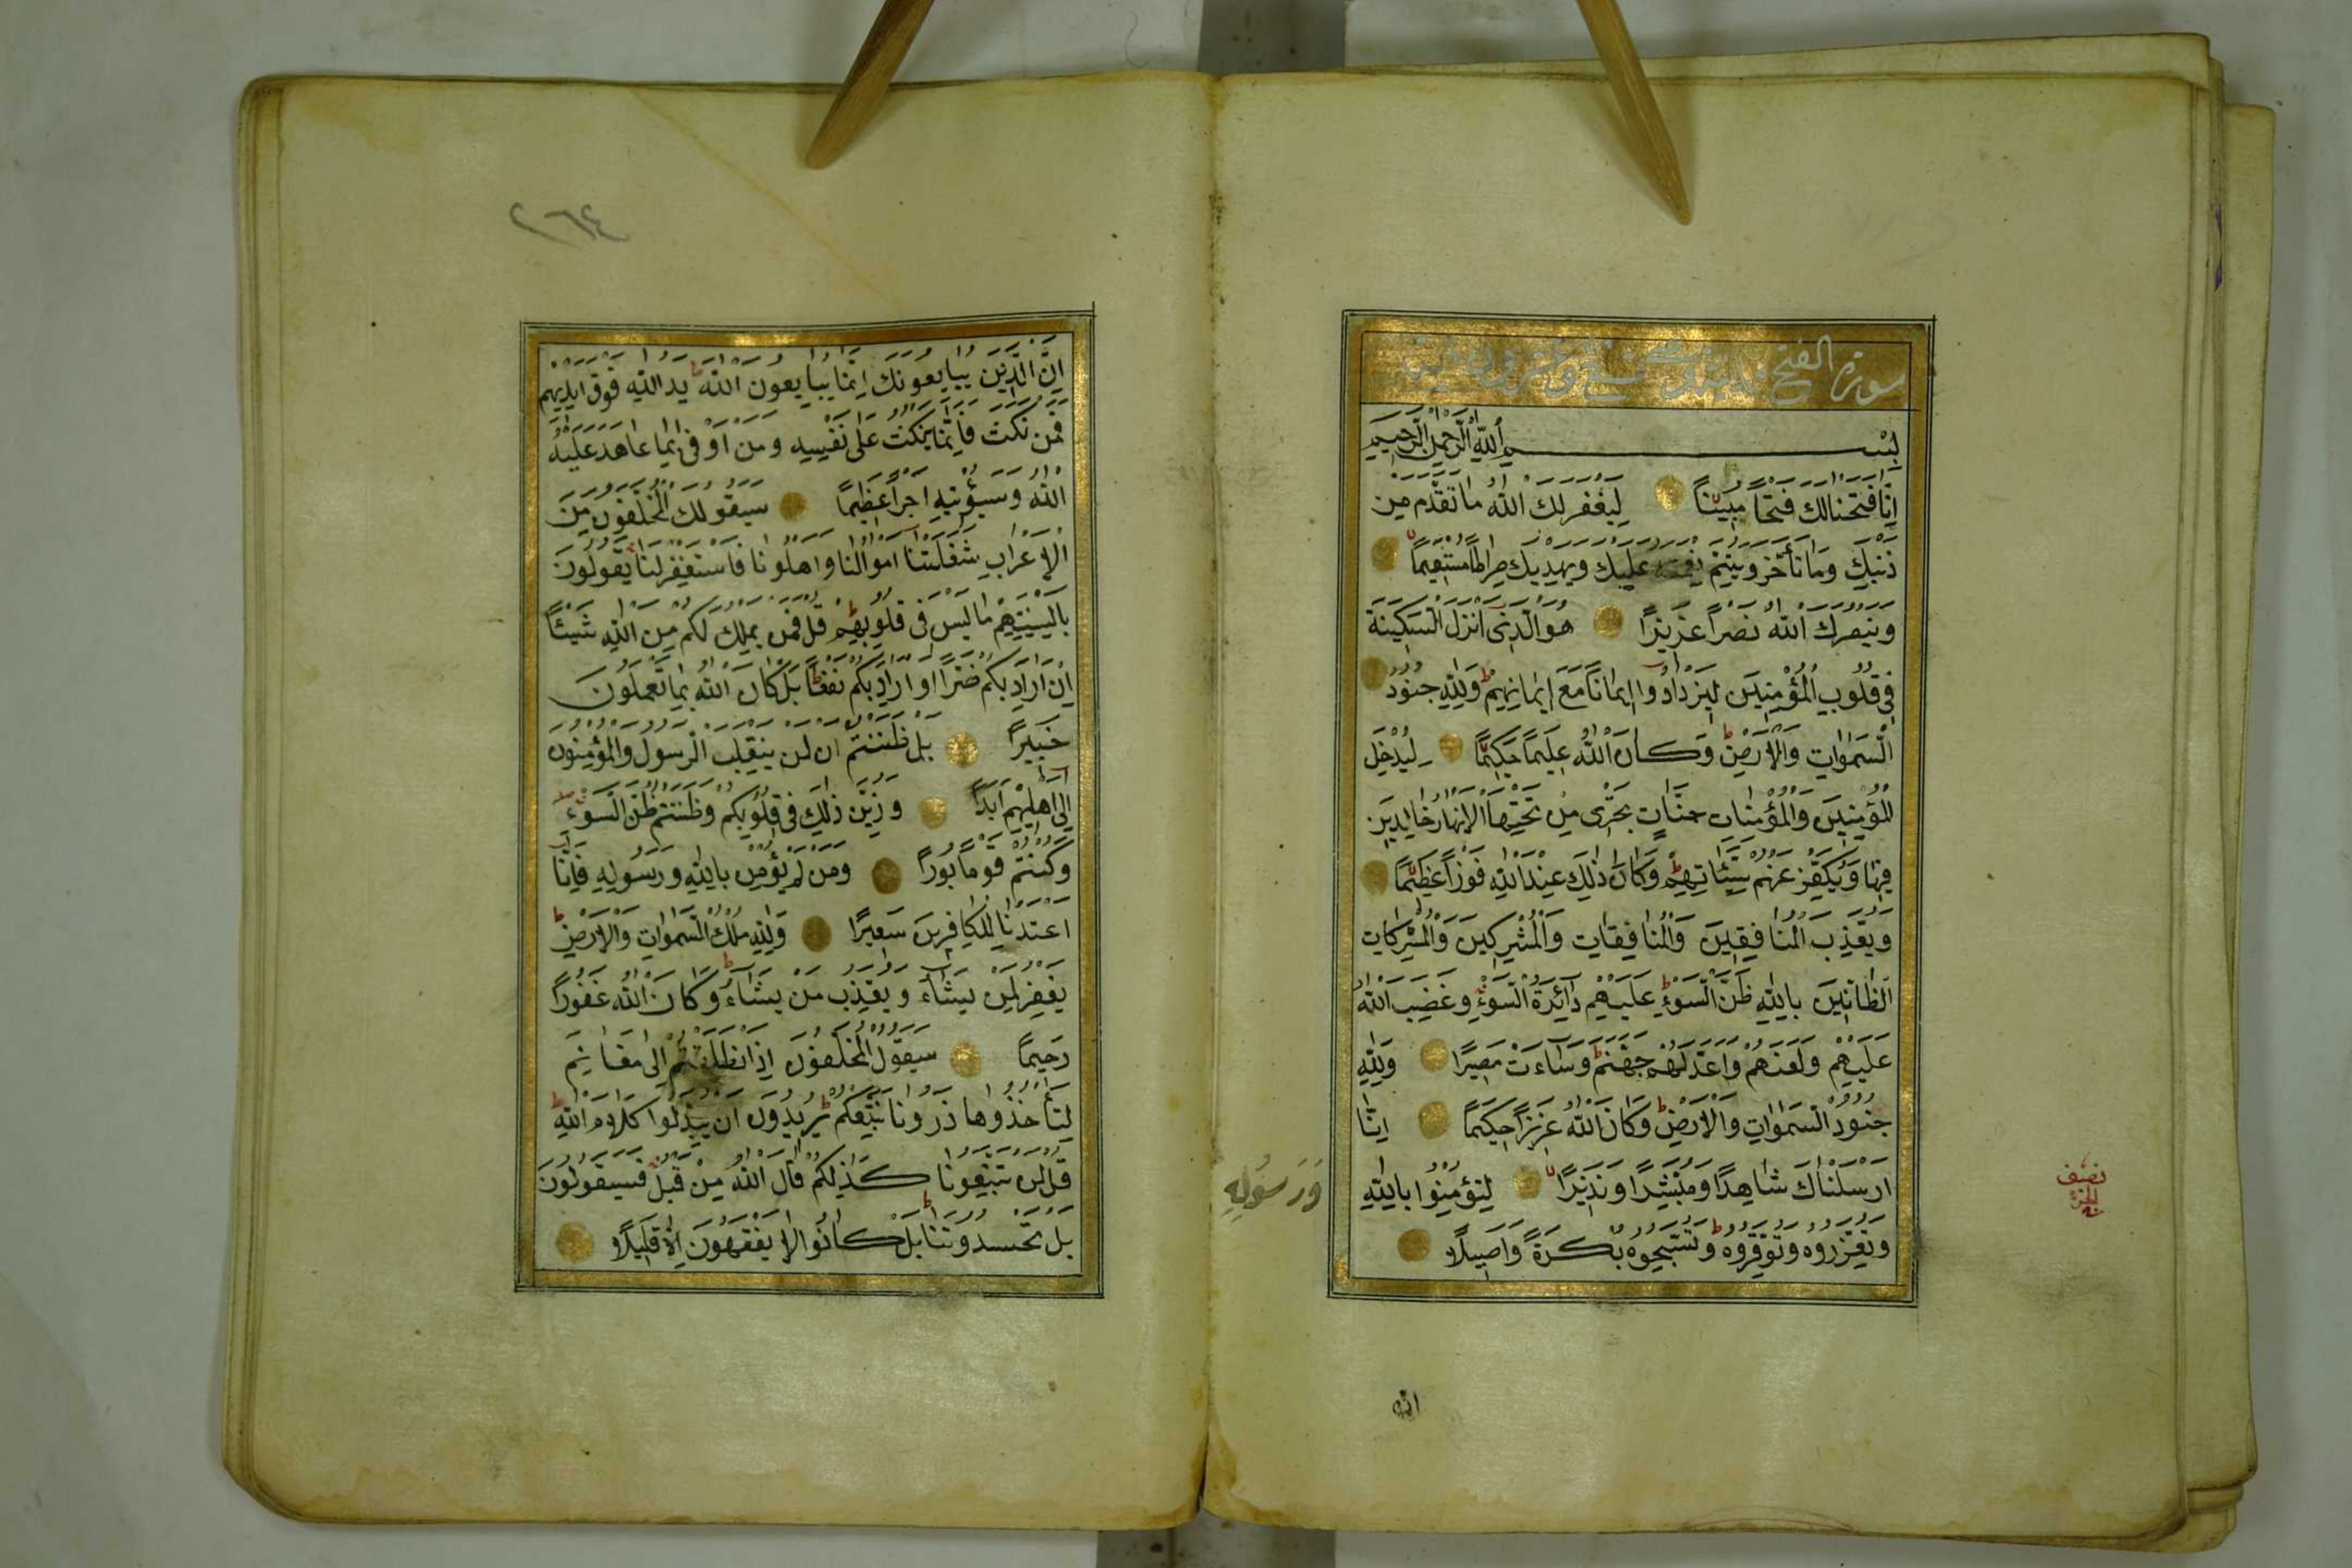 سورة الفتح
بسم الله الرحمن الرحيم
اِنَّا فَتَحْنَا لَكَ فَتْحًا مُبِينًا لِيَغْفِرَ لَكَ اللّٰهُ مَا تَقَدَّمَ مِنْ
ذَنْبِكَ وَمَا تَأَخَّرَ وَيُتِمَّ نِعْمَتَهُ عَلَيْكَ وَيَهْدِيَكَ صِرَاطًا مُسْتَقِيمًا
وَيَنْصُرَكَ اللّٰهُ نَصْرًا عَزِيزًا هُوَ الَّذِى اَنْزَلَ السَّكِينَةَ
فِى قُلُوبِ الْمُؤْمِنِينَ لِيَزْدَادُوا اِيمَانًا مَعَ اِيمَانِهِمْ وَلِلّٰهِ جُنُودُ
السَّمٰوَاتِ وَالْاَرْضِ وَكَانَ اللّٰهُ عَلِيمًا حَكِيمًا لِيُدْخِلَ
الْمُؤْمِنِينَ وَالْمُؤْمِنَاتِ جَنَّاتٍ تَجْرِى مِنْ تَحْتِهَا الْاَنْهَارُ خَالِدِينَ
فِيهَا وَيُكَفِّرَ عَنْهُمْ سَيِّئَاتِهِمْ وَكَانَ ذٰلِكَ عِنْدَ اللّٰهِ فَوْزًا عَظِيمًا
وَيُعَذِّبَ الْمُنَافِقِينَ وَالْمُنَافِقَاتِ وَالْمُشْرِكِينَ وَالْمُشْرِكَاتِ
الظَّانِّينَ بِاللّٰهِ ظَنَّ السَّوْءِ عَلَيْهِمْ دَائِرَةُ السَّوْءِ وَغَضِبَ اللّٰهُ
عَلَيْهِمْ وَلَعَنَهُمْ وَاَعَدَّ لَهُمْ جَهَنَّمَ وَسَاءَتْ مَصِيرًا وَلِلّٰهِ
جُنُودُ السَّمٰوَاتِ وَالْاَرْضِ وَكَانَ اللّٰهُ عَزِيزًا حَكِيمًا اِنَّا
اَرْسَلْنَاكَ شَاهِدًا وَمُبَشِّرًا وَنَذِيرًا لِتُؤْمِنُوا بِاللّٰهِ
وَرَسُولِهِ
وَتُعَزِّرُوهُ وَتُوَقِّرُوهُ وَتُسَبِّحُوهُ بُكْرَةً وَاَصِيلًا
نصف
الجزء
ان
٢٦٤
اِنَّ الَّذِينَ يُبَايِعُونَكَ اِنَّمَا يُبَايِعُونَ اللّٰهَ يَدُ اللّٰهِ فَوْقَ اَيْدِيهِمْ
فَمَنْ نَكَثَ فَاِنَّمَا يَنْكُثُ عَلٰى نَفْسِهِ وَمَنْ اَوْفٰى بِمَا عَاهَدَ عَلَيْهُ
اللّٰهَ وَسَيُؤْتِيهِ اَجْرًا عَظِيمًا سَيَقُولُ لَكَ الْمُخَلَّفُونَ مِنَ
الْاَعْرَابِ شَغَلَتْنَا اَمْوَالُنَا وَاَهْلُونَا فَاسْتَغْفِرْ لَنَا يَقُولُونَ
بِاَلْسِنَتِهِمْ مَا لَيْسَ فِى قُلُوبِهِمْ قُلْ فَمَنْ يَمْلِكُ لَكُمْ مِنَ اللّٰهِ شَيْئًا
اِنْ اَرَادَ بِكُمْ ضَرًّا اَوْ اَرَادَ بِكُمْ نَفْعًا بَلْ كَانَ اللّٰهُ بِمَا تَعْمَلُونَ
خَبِيرًا بَلْ ظَنَنْتُمْ اَنْ لَنْ يَنْقَلِبَ الرَّسُولُ وَالْمُؤْمِنُونَ
اِلٰى اَهْلِيهِمْ اَبَدًا وَزُيِّنَ ذٰلِكَ فِى قُلُوبِكُمْ وَظَنَنْتُمْ ظَنَّ السَّوْءِ
وَكُنْتُمْ قَوْمًا بُورًا وَمَنْ لَمْ يُؤْمِنْ بِاللّٰهِ وَرَسُولِهِ فَاِنَّا
اَعْتَدْنَا لِلْكَافِرِينَ سَعِيرًا وَلِلّٰهِ مُلْكُ السَّمٰوَاتِ وَالْاَرْضِ
يَغْفِرُ لِمَنْ يَشَاءُ وَيُعَذِّبُ مَنْ يَشَاءُ وَكَانَ اللّٰهُ غَفُورًا
رَحِيمًا سَيَقُولُ الْمُخَلَّفُونَ اِذَا انْطَلَقْتُمْ اِلٰى مَغَانِمَ
لِتَأْخُذُوهَا ذَرُونَا نَتَّبِعْكُمْ يُرِيدُونَ اَنْ يُبَدِّلُوا كَلَامَ اللّٰهِ
قُلْ لَنْ تَتَّبِعُونَا كَذٰلِكُمْ قَالَ اللّٰهُ مِنْ قَبْلُ فَسَيَقُولُونَ
بَلْ تَحْسُدُونَنَا بَلْ كَانُوا لَا يَفْقَهُونَ اِلَّا قَلِيلًا